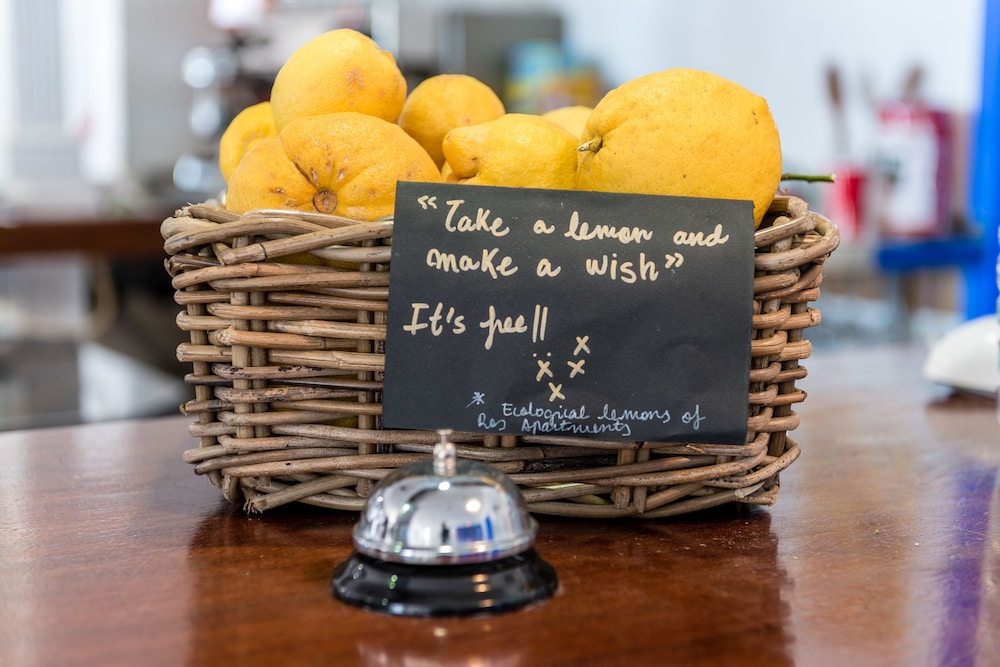 “Take a lemon and
make a wish”
It's free!!
* Ecological lemons of
Res Apartments